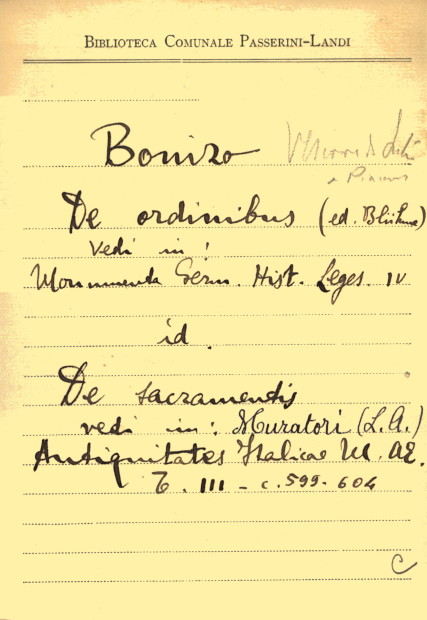 BIBLIOTECA COMUNALE PASSERINI-LANDI
Bonizo
De ordinibus (ed. Blühme)
vedi in:
Monumenta Germ. Hist. Leges. IV
id.
De sacramentis
vedi in: Muratori (L. A.)
Antiquitates Italicae M. AE.
T. III - c. 599-604
C